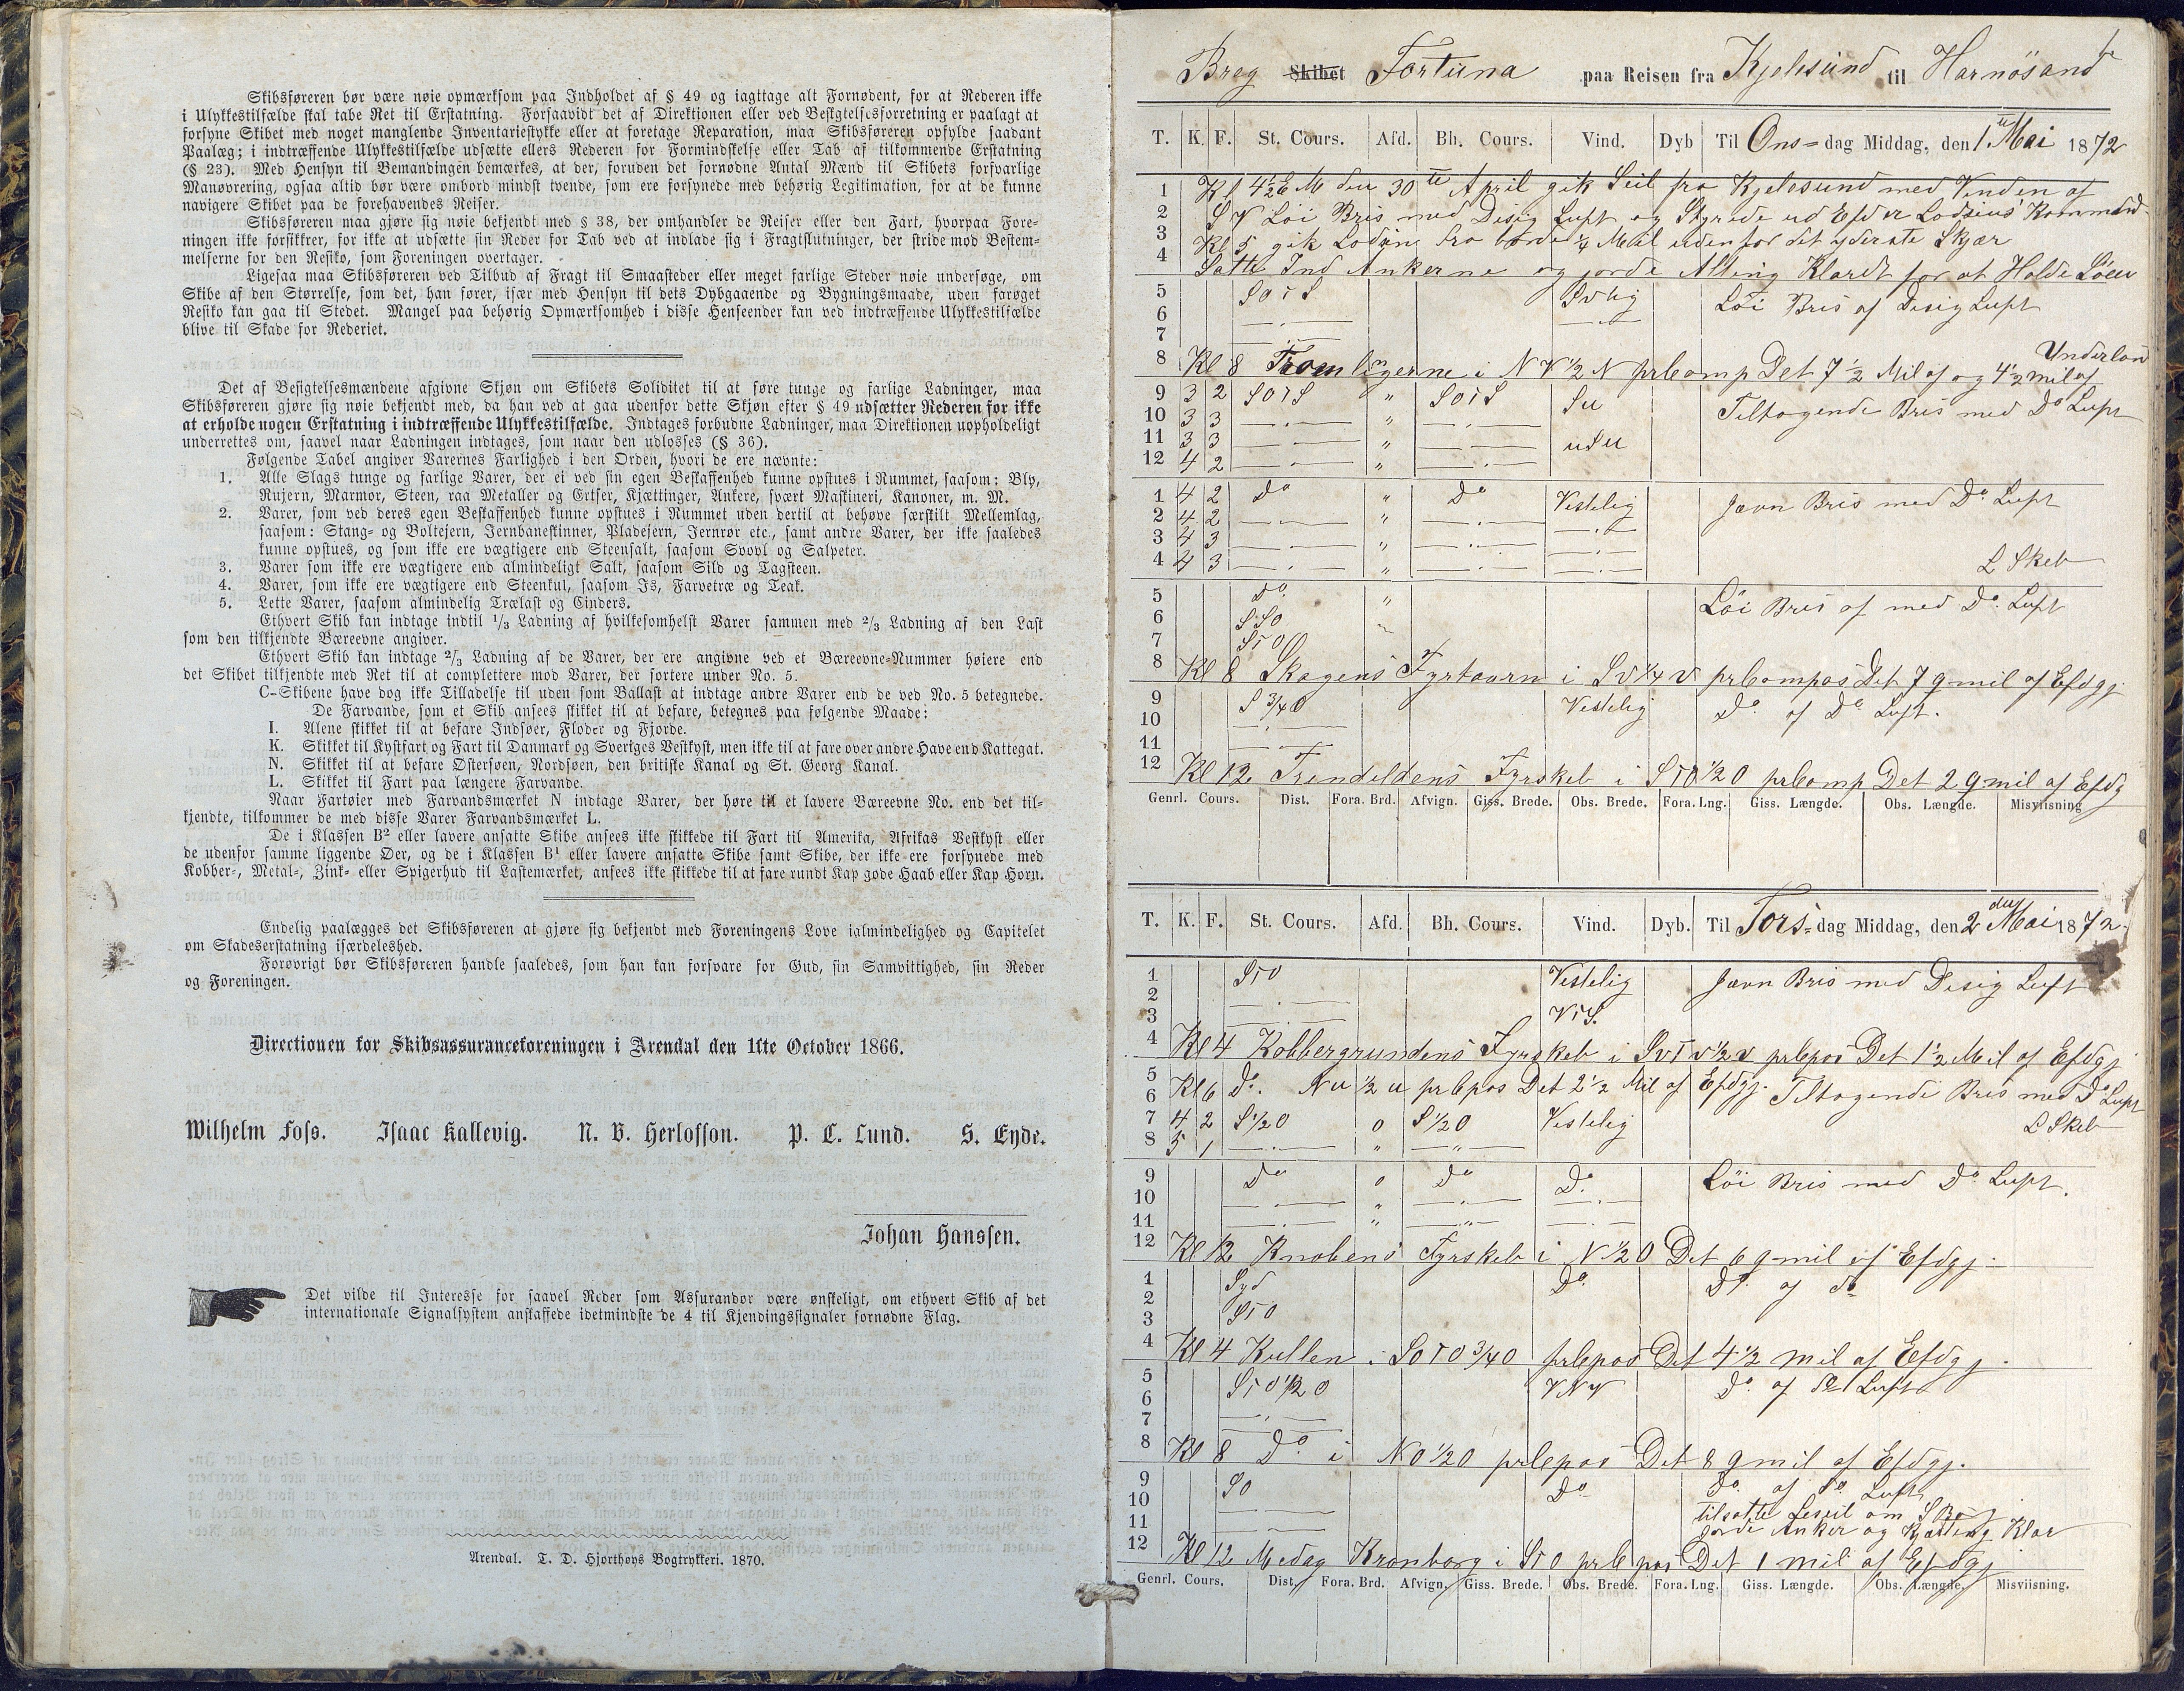 Skibsføreren bør være nøie opmærksom paa Indholdet af § 49 og iagttage alt Fornødent, for at Rederen ikke
i Ulykkestilfælde skal tabe Ret til Erstatning. Forsaavidt det af Direktionen eller ved Besigtelsesforretning er paalagt at
forsyne Skibet med noget manglende Inventariestykke eller at foretage Reparation, maa Skibsføreren opfylde saadant
Paalæg; i indtræffende Ulykkestilfælde udsætte ellers Rederen for Formindskelse eller Tab af tilkommende Erstatning
(§ 23). Med Hensyn til Bemandingen bemærkes, at der, foruden det fornødne Antal Mænd til Skibets forsvarlige
Manøvrering, ogsaa altid bør være ombord mindst tvende, som ere forsynede med behørig Legitimation, for at de kunne
navigere Skibet paa de forehavendes Reiser.
Skibsføreren maa gjøre sig nøie bekjendt med § 38, der omhandler de Reiser eller den Fart, hvorpaa Fore-
ningen ikke forsikkrer, for ikke at udsætte sin Reder for Tab ved at indlade sig i Fragtslutninger, der stride mod Bestem-
melserne for den Resiko, som Foreningen overtager.
Ligesaa maa Skibsføreren ved Tilbud af Fragt til Smaasteder eller meget farlige Steder nøie undersøge, om
Skibe af den Størrelse, som det, han fører, især med Hensyn til dets Dybgaaende og Bygningsmaade, uden farøget
Resiko kan gaa til Stedet. Mangel paa behørig Opmærksomhed i disse Henseender kan ved indtræffende Ulykkestilfælde
blive til Skade for Rederiet.
Det af Besigtelsesmændene afgivne Skjøn om Skibets Soliditet til at føre tunge og farlige Ladninger, maa
Skibsføreren gjøre sig nøie bekjendt med, da han ved at gaa udenfor dette Skjøn efter § 49 udsætter Rederen for ikke
at erholde nogen Erstatning i indtræffende Ulykkestilfælde. Indtages forbudne Ladninger, maa Direktionen uopholdeligt
underrettes om, saavel naar Ladningen indtages, som naar den udlosses (§ 36).
Følgende Tabel angiver Varernes Farlighed i den Orden, hvori de ere nævnte:
1. Alle Slags tunge og farlige Varer, der ei ved sin egen Beskaffenhed kunne opstues i Rummet, saasom: Bly,
Rujern, Marmor, Steen, raa Metaller og Ertser, Kjættinger, Ankere, svært Maskineri, Kanoner, m. M.
2. Varer, som ved deres egen Beskaffenhed kunne opstues i Rummet uden dertil at behøve særskilt Mellemlag,
saasom: Stang- og Boltejern, Jernbaneskinner, Pladejern, Jernrør etc., samt andre Varer, der ikke saaledes
kunne opstues, og som ikke ere vægtigere end Steensalt, saasom Svovl og Salpeter.
3. Varer som ikke ere vægtigere end almindeligt Salt, saasom Sild og Tagsteen.
4. Varer, som ikke ere vægtigere end Steenkul, saasom Is, Farvetræ og Teak.
5. Lette Varer, saasom almindelig Trælast og Cinders.
Ethvert Skib kan indtage indtil 1/3 Ladning af hvilkesomhelst Varer sammen med 2/3 Ladning af den Last
som den tilkjendte Bæreevne angiver.
Ethvert Skib kan indtage 2/3 Ladning af de Varer, der ere angivne ved et Bæreevne-Nummer høiere end
det Skibet tilkjendte med Ret til at complettere mod Varer, der sortere under No. 5.
C-Skibene have dog ikke Tilladelse til uden som Ballast at indtage andre Varer end de ved No. 5 betegnede.
De Farvande, som et Skib ansees skikket til at befare, betegnes paa følgende Maade:
I. Alene skikket til at befare Indsøer, Floder og Fjorde.
K. Skikket til Kystfart og Fart til Danmark og Sveriges Vestkyst, men ikke til at fare over andre Have end Kattegat.
N. Skikket til at befare Østersøen, Nordsøen, den britiske Kanal og St. Georg Kanal.
L. Skikket til Fart paa længere Farvande.
Naar Fartøier med Farvandsmærket N indtage Varer, der høre til et lavere Bæreevne No. end det til-
kjendte, tilkommer de med disse Varer Farvandsmærket L.
De i Klassen B² eller lavere ansatte Skibe ansees ikke skikkede til Fart til Amerika, Afrikas Vestkyst eller
de udenfor samme liggende Øer, og de i Klassen B¹ eller lavere ansatte Skibe samt Skibe, der ikke ere forsynede med
Kobber-, Metal-, Zink- eller Spigerhud til Lastemærket, ansees ikke skikkede til at fare rundt Kap gode Haab eller Kap Horn.
Endelig paalægges det Skibsføreren at gjøre sig bekjendt med Foreningens Love ialmindelighed og Capitelet
om Skadeserstatning isærdeleshed.
Forøvrigt bør Skibsføreren handle saaledes, som han kan forsvare for Gud, sin Samvittighed, sin Reder
og Foreningen.
Directionen for Skibsassuranceforeningen i Arendal den 11te October 1866.
Wilhelm Foss. Isaac Kallevig. N. B. Herlofson. P. C. Lund. S. Eyde.
Johan Hanssen.
Det vilde til Interesse for saavel Reder som Assurandør være ønskeligt, om ethvert Skib af det
internationale Signalsystem anskaffede idetmindste de 4 til Kjendingssignaler fornødne Flag.
Arendal. T. D. Hjorthøys Bogtrykkeri. 1870.
Breg Skibet Fortuna paa Reisen fra Kjelesund til Harnösand
T. K. F. St. Cours. Afd. Bh. Cours. Vind. Dyb Til Ons= dag Middag, den 1 Mai 1872
1 Kl 4½ E M den 30te April gik Seil fra Kjelesund med Vinden af
2 S V Löi Bris med Disig Luft og Styrede ud Efder Lodsens Kommand
3 Kl 5 gik Lodsin fra borde ¼ Miil udenfor det yderste Skjær
4 Satte Ind Ankerne og jorde Alting Klardt for at Holde Söen
5 SOtS Svlig Löi Bris af Disig Luft
6
7
Underlan
8 Kl 8 Tromlingerne i N V ½ N prComp Det 7½ Mil af og 4½ mil af
9 3 2 SOtS " SOtS Su Teltagende Bris med Do Luft
10 3 3 "
11 3 3 " uSu
12 4 2 "
1 4 2 Do " Do Vestelig Jævn Bris med Do Luft
2 4 2 "
3 4 3 "
4 4 3 " L Skeb
5 Do " Löi Bris af med Do. Luft
6 SSO
7 StO
8 Kl 8 Skagens Fyrtaarn i Sv ¼ v prCompas Det 7 qmil af Efdgj
9 S ¾ O Vestelig Do af Do Luft.
10
11
12 Kl 12 Trendeldens Fyrskeb i StO ½ O prComp Det 2 qmil af Efdg
Genrl. Cours. Dist. Fora. Brd. Afvign. Giss. Brede. Obs. Brede. Fora. Lng. Giss. Længde. Obs. Længde. Misviisning
T. K. F. St. Cours. Afd. Bh. Cours. Vind. Dyb. Til Tors= dag Middag, den 2den Mai 1872.
1 StO Vestelig Jævn Bris med Disig Luft
2
3 VtS.
4 Kl 4 Kobbergrundens Fyrskeb i Svtv ½ v prCpas Det 1½ Mil af Efdgj
5
6 Kl 6 do. Nu ½ u prCpas Det 2½ Mil af Efdgj. Teltagende Bris med Do Luft
7 4 2 S ½ O 0 S ½ O Vestelig L Skeb
8 5 1 "
9 Do 0 Do Do. Löi Bris med Do Luft.
10 "
11 "
12 Kl 12 Knobens Fyrskeb i N ½ O Det 6 qmil af Efdgj.
1 Syd Do. Do. af do
2
3 StO
4 Kl 4 Kullen i SOtO ¾ O prCpas Det 4½ mil af Efdgj.
5 StO ½ O VNV Do. af Do Luft
6
7
8 Kl 8 Do. i NO ½ O prCpas Det 8 qmil af Efdgj.
9 SO Do Do. af Do. Luft
10 tilsatte Leseil om S B
11 jorde Anker og Kjætting Klar
12 Kl 12 Medag Kronborg i StO prCpas Det 1 mil af Efdgj
Genrl. Cours. Dist. Fora. Brd. Afvign. Giss. Brede. Obs. Brede. Fora. Lng. Giss. Længde. Obs. Længde. Misviisning.